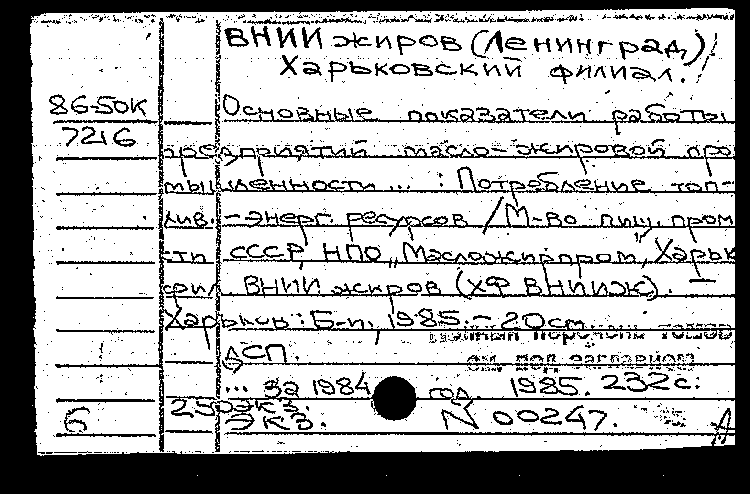 ВНИИ жиров (Ленинград)
Харьковский филиал.
86-50К
7216
Основные показатели работы
предприятий масло-жировой про
мышленности ... : Потребление топ-
лив. - энерг. ресурсов / М-во пищ. пром
сти СССР, НПО „Масложирпром", Харьк
фил. ВНИИ жиров (ХФ ВНИИЖ). —
Харьков : Б.и., 1985. - 20см.
Полный перечень томов
см. под заглавием
ДСП.
... за 1984 год. 1985. 232с.
250экз.
6 экз. N 00247.